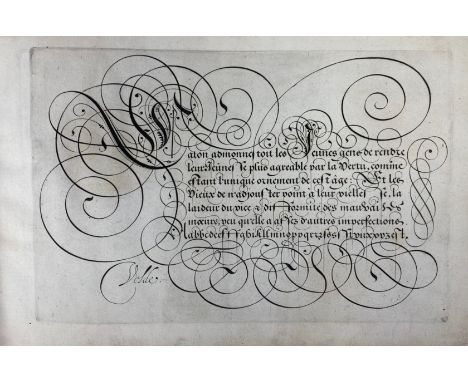 Caton admonnestoit les Jeunes gens de rendre
leur Jeunesse plus agreable par la Vertu, comme
estant l'unique ornement de cest age: Et les
Vieux de n'adjouster point a leur viellesse, la
laideur du vice & difformité des mauvaises
mœurs, veu qu'elle a assez d'autres imperfections.
Velde.